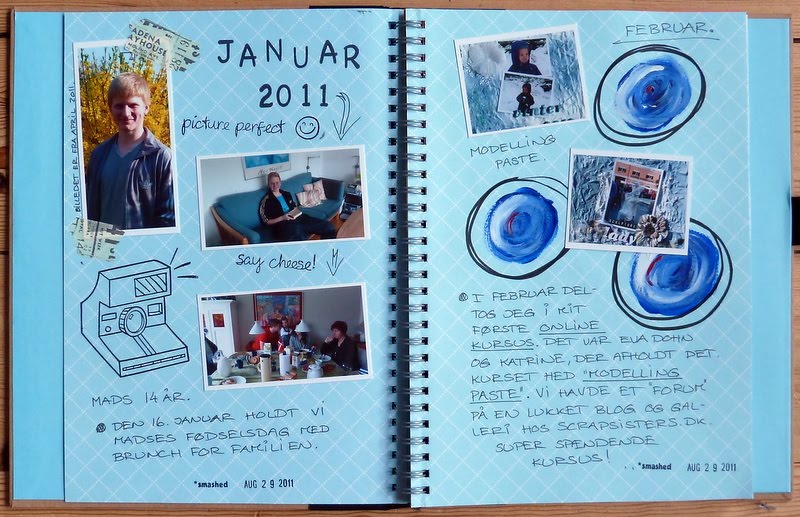 JANUAR
2011
ADENA
AYHOUSE
picture perfect
BILLEDET ER FRA APRIL 2011.
say cheese!
MADS 14 ÅR.
DEN 16. JANUAR HOLDT VI
MADSES FØDSELSDAG MED
BRUNCH FOR FAMILIEN.
*smashed AUG 29 2011
FEBRUAR.
winter
MODELLING
PASTE
I FEBRUAR DEL-
TOG JEG I MIT
FØRSTE ONLINE
KURSUS. DET VAR EVA DOHN
OG KATRINE, DER AFHOLDT DET.
KURSET HED "MODELLING
PASTE". VI HAVDE ET "FORUM"
PÅ EN LUKKET BLOG OG GAL-
LERI HOS SCRAPSISTERS.DK.
SUPER SPÆNDENDE
KURSUS!
...*smashed AUG 29 2011